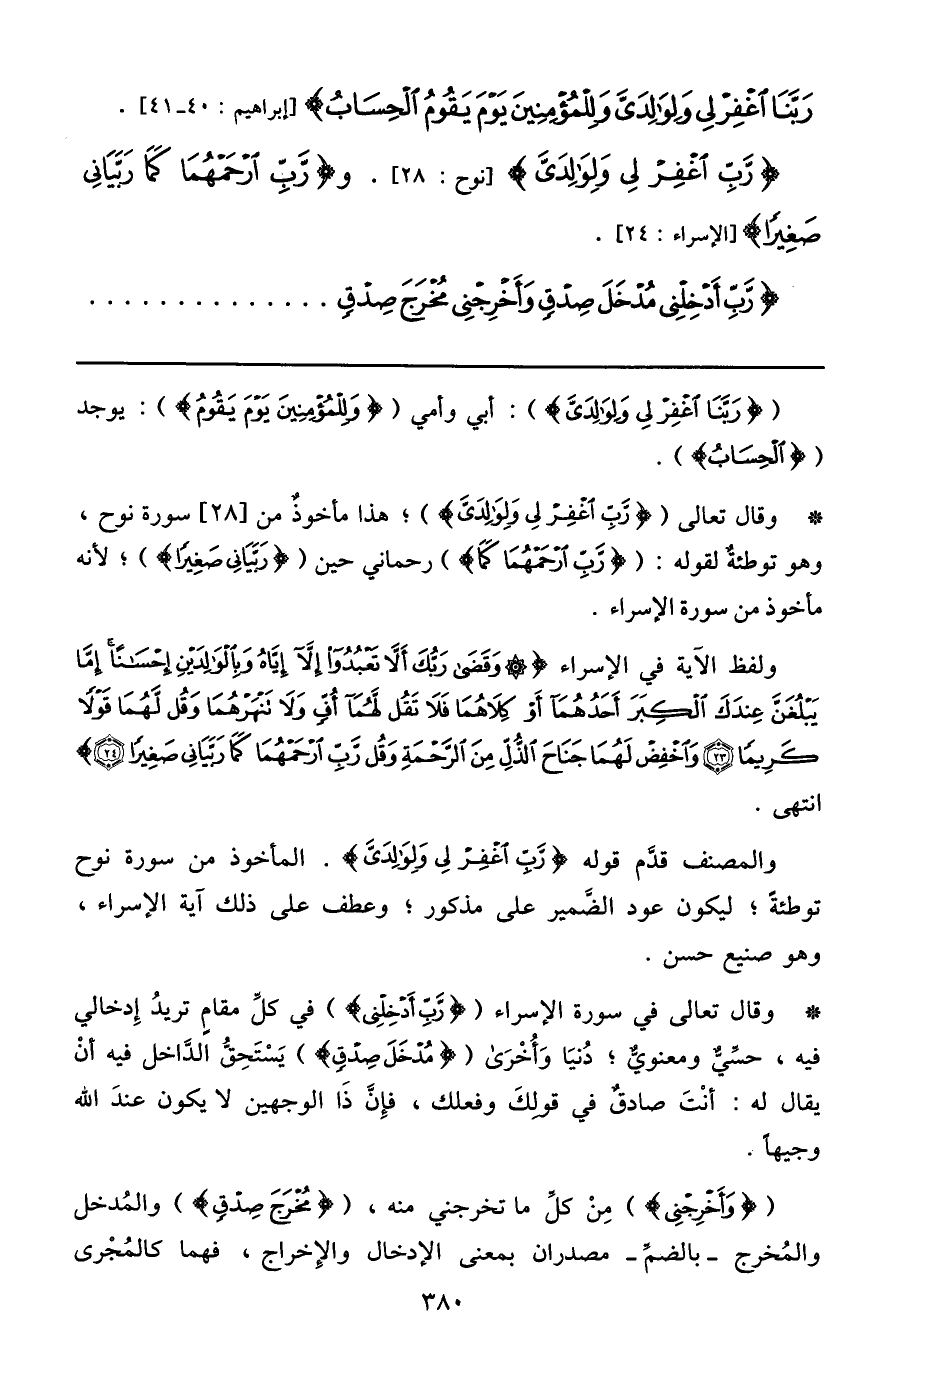 رَبَّنَا ٱغْفِرْ لِي وَلِوَٰلِدَيَّ وَلِلْمُؤْمِنِينَ يَوْمَ يَقُومُ ٱلْحِسَابُ﴾ [إبراهيم : ٤٠ـ٤١] .
﴿رَّبِّ ٱغْفِرْ لِي وَلِوَٰلِدَيَّ﴾ [نوح : ٢٨] . و﴿رَّبِّ ٱرْحَمْهُمَا كَمَا رَبَّيَانِي
صَغِيرًا﴾ [الإسراء : ٢٤] .
﴿رَّبِّ أَدْخِلْنِي مُدْخَلَ صِدْقٍ وَأَخْرِجْنِي مُخْرَجَ صِدْقٍ . . . . . . . . . . . . . .
( ﴿رَبَّنَا ٱغْفِرْ لِي وَلِوَٰلِدَيَّ﴾ ) : أبي وأمي ( ﴿وَلِلْمُؤْمِنِينَ يَوْمَ يَقُومُ﴾ ) : يوجد
( ﴿ٱلْحِسَابُ﴾ ) .
* وقال تعالى ( ﴿رَّبِّ ٱغْفِرْ لِي وَلِوَٰلِدَيَّ﴾ ) ؛ هذا مأخوذٌ من [٢٨] سورة نوح ،
وهو توطئةٌ لقوله : ( ﴿رَّبِّ ٱرْحَمْهُمَا كَمَا﴾ ) رحماني حين ( ﴿رَبَّيَانِي صَغِيرًا﴾ ) ؛ لأنه
مأخوذ من سورة الإسراء .
ولفظ الآية في الإسراء ﴿۞ وَقَضَىٰ رَبُّكَ أَلَّا تَعْبُدُوٓا۟ إِلَّآ إِيَّاهُ وَبِٱلْوَٰلِدَيْنِ إِحْسَٰنًا ۚ إِمَّا
يَبْلُغَنَّ عِندَكَ ٱلْكِبَرَ أَحَدُهُمَآ أَوْ كِلَاهُمَا فَلَا تَقُل لَّهُمَآ أُفٍّ وَلَا تَنْهَرْهُمَا وَقُل لَّهُمَا قَوْلًا
كَرِيمًا ٢٣ وَٱخْفِضْ لَهُمَا جَنَاحَ ٱلذُّلِّ مِنَ ٱلرَّحْمَةِ وَقُل رَّبِّ ٱرْحَمْهُمَا كَمَا رَبَّيَانِي صَغِيرًا ٢٤﴾
انتهى .
والمصنف قدَّم قوله ﴿رَّبِّ ٱغْفِرْ لِي وَلِوَٰلِدَيَّ﴾ . المأخوذ من سورة نوح
توطئةً ؛ ليكون عود الضَّمير على مذكور ؛ وعطف على ذلك آية الإسراء ،
وهو صنيع حسن .
* وقال تعالى في سورة الإسراء ( ﴿رَّبِّ أَدْخِلْنِي﴾ ) في كلِّ مقامٍ تريدُ إدخالي
فيه ، حسِّيٌّ ومعنويٌّ ؛ دُنيَا وَأُخْرَىٰ ( ﴿مُدْخَلَ صِدْقٍ﴾ ) يَسْتَحِقُّ الدَّاخل فيه أنْ
يقال له : أنْتَ صادقٌ في قولِكَ وفعلك ، فإنَّ ذَا الوجهين لا يكون عندَ الله
وجيهاً .
( ﴿وَأَخْرِجْنِي﴾ ) مِنْ كلِّ ما تخرجني منه ، ( ﴿مُخْرَجَ صِدْقٍ﴾ ) والمُدخل
والمُخرج ـ بالضمِّ ـ مصدران بمعنى الإدخال والإخراج ، فهما كالمُجْرى
٣٨٠